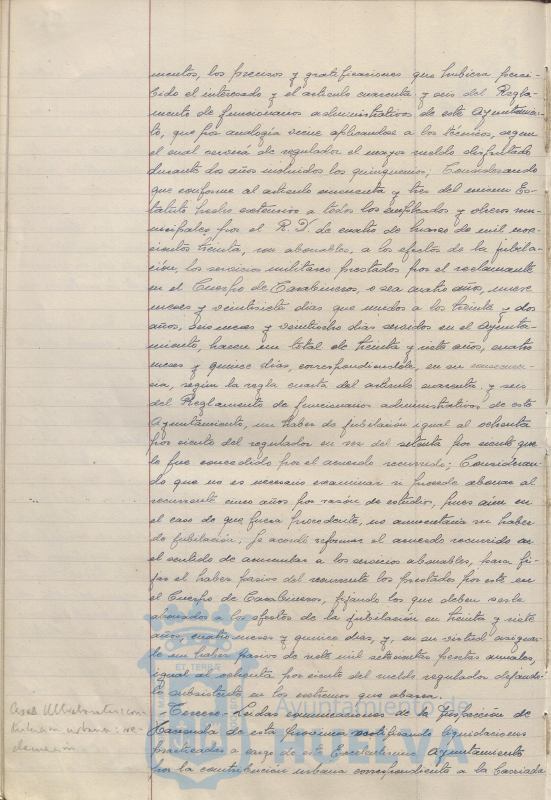 mentos, los premios y gratificaciones que hubiera perci-
bido el interesado y el artículo cuarenta y seis del Regla-
mento de funcionarios administrativos de este Ayuntamien-
to, que por analogía viene aplicandose a los técnicos, segun
el cual servirá de regulador el mayor sueldo disfrutado
durante dos años incluidos los quinquenios; Considerando
que conforme al articulo cincuenta y tres del mismo Es-
tatuto hecho extensivo a todos los empleados y obreros mu-
nicipales por el R. D. de cuatro de marzo de mil nove-
cientos treinta, son abonables, a los efectos de la jubila-
ción, los servicios militares prestados por el reclamante
en el Cuerpo de Carabineros, o sea cuatro años, nueve
meses y veintisiete dias que unidos a los treinta y dos
años, seis meses y veintiocho dias servidos en el Ayunta-
miento, hacen un total de treinta y siete años, cuatro
meses y quince dias, correspondiendole, en su consecuen-
cia, según la regla cuarta del articulo cuarenta y seis
del Reglamento de funcionarios administrativos de este
Ayuntamiento, un haber de jubilación igual al ochenta
por ciento del regulador en vez del setenta por ciento que
le fue concedido por el acuerdo recurrido; Consideran-
do que no es necesario examinar si procede abonar al
recurrente cinco años por razón de estudios, pues aún en
el caso de que fuera procedente, no aumentaria su haber
de jubilación. Se acordó reformar el acuerdo recurrido en
el sentido de aumentar a los servicios abonables, para fi-
jar el haber pasivo del recurrente los prestados por este en
el Cuerpo de Carabineros, fijando los que deben serle
abonados a los efectos de la jubilación en treinta y siete
años, cuatro meses y quince dias, y, en su virtud asignar-
le un haber pasivo de siete mil setecientas pesetas anuales,
igual al ochenta por ciento del sueldo regulador dejando-
lo subsistente en los extremos que abarca.
Tercero.- Leidas comunicaciones de la Inspección de
Hacienda de esta provincia notificando liquidaciones
practicadas a cargo de este Excelentisimo Ayuntamiento
por la contribución urbana correspondiente a la Barriada
Casas Ultrabaratas: con-
tribucion urbana: re-
clamación
ET TERRAE
Ayuntamiento de
HUELVA